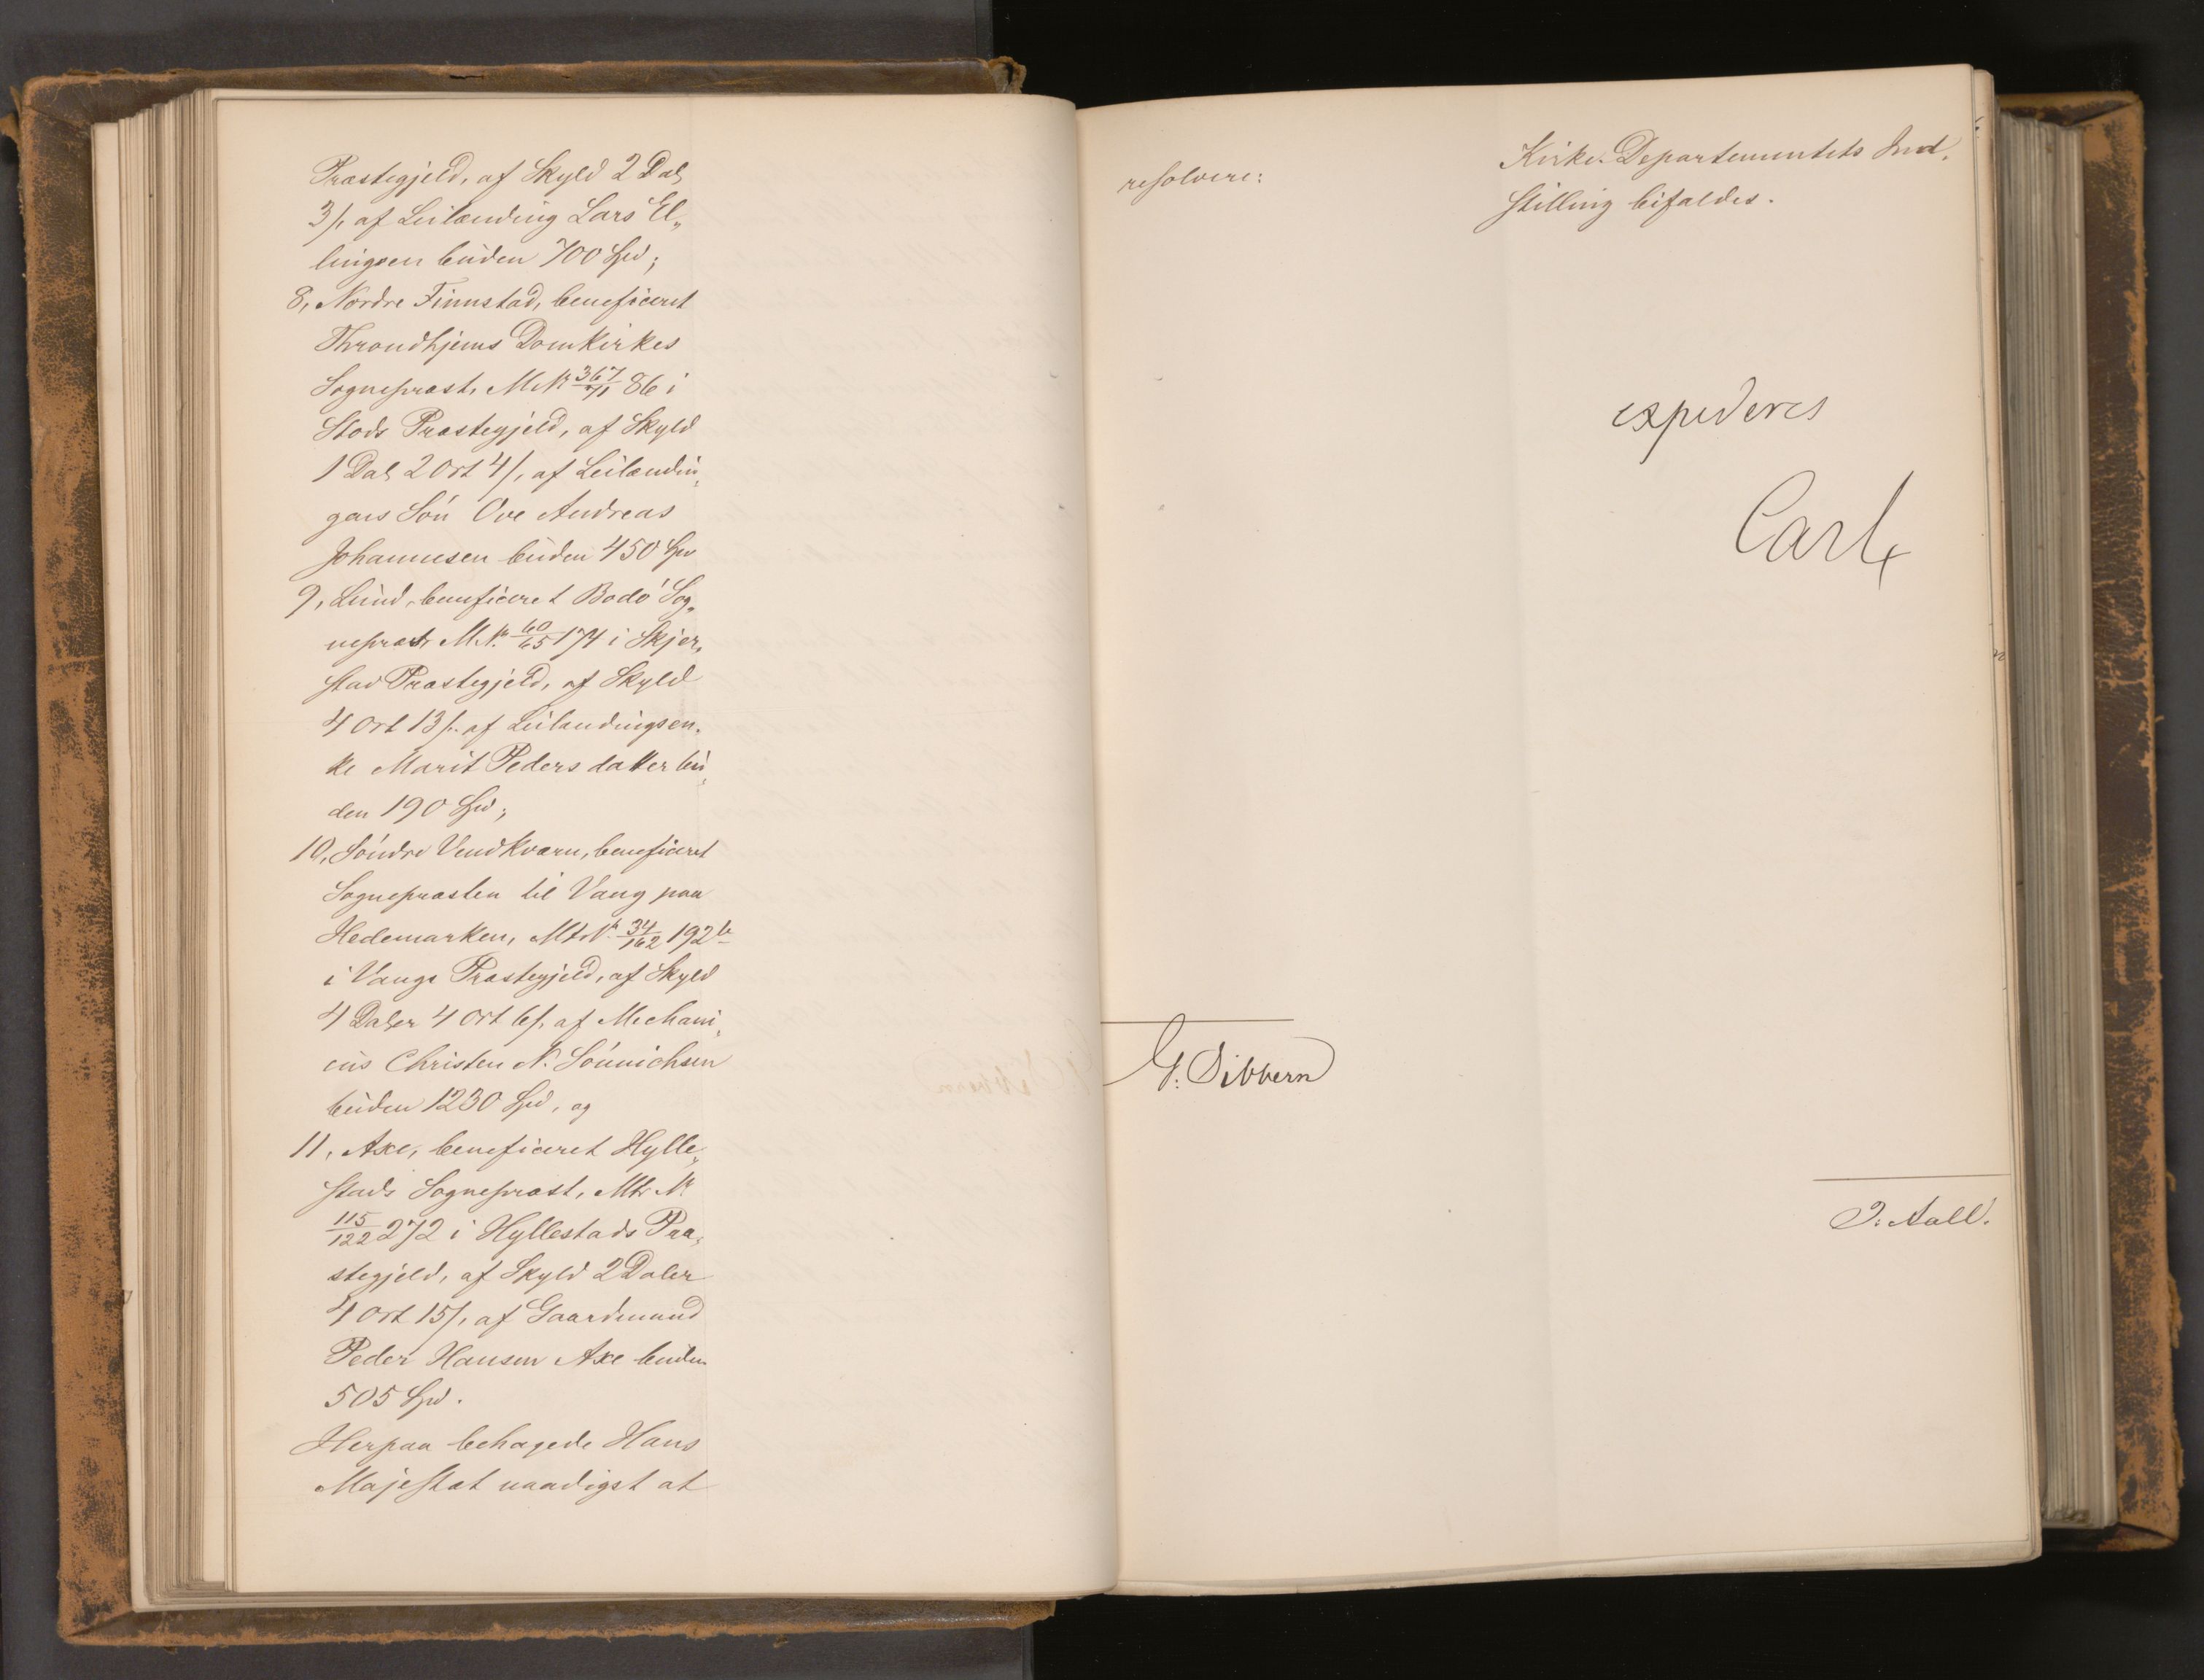 Præstegjeld, af Skyld 2 Dal,
3 /, af Leilænding Lars El„
lingsen buden 700 Spd;
8, Nordre Finnstad, beneficeret
Throndhjems Domkirkes
Sognepræst, M. Nr 367/ 86 i
Stods Præstegjeld, af Skyld
1 Dal, 2 Ort 4 /, af Leilændin„
gens Sön Ove Andreas
Johannesen buden 450 Spd
9, Lund, beneficeret Bodö Sog„
nepræst, M. Nr. 60/65 174 i Skjer„
stad Præstegjeld, af Skyld
4 Ort 13 /. af Leilændingsen„
ke Marit Pedersdatter bu„
den 190 Spd;
10, Söndre Vendkværn, beneficeret
Sognepræsten til Vang paa
Hedemarken, Mt. Nr. 34/162 192 b
i Vangs Præstegjeld, af Skyld
4 Daler 4 Ort 6 /. af Mechani„
cus Christen N. Sönnichsen
buden 1230 Spd, og
11, Axe, beneficeret Hylle„
stads Sognepræst, Mtr. Nr
115/122 272 i Hyllestads Præ„
stegjeld, af Skyld 2 Daler
4 Ort 15 /, af Gaardmand
Peder Hansen Axe buden
505 Spd.
Herpaa behagede Hans
Majestæt naadigst at
resolvere:
Kirke-Departementets Ind„
stilling bifaldes.
expederes
Carl
G. Sibbern
J. Aall.